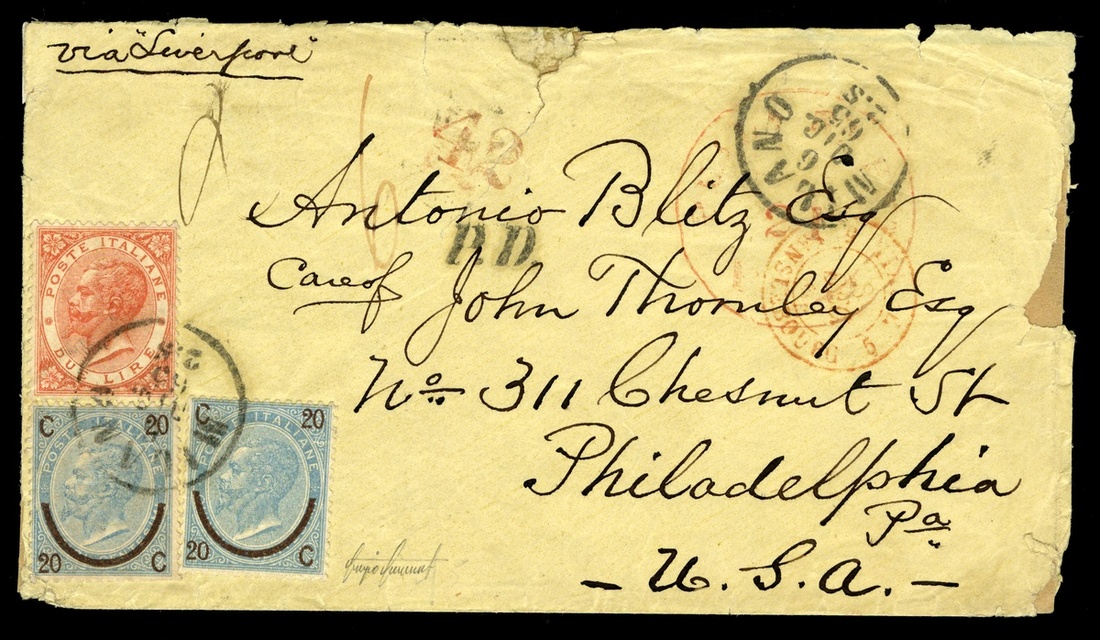 via "Liverpool"
42
P.D.
MILANO
6
DIC
65
2.S
Antonio Blitz Esq
Care of John Thornley Esq
No 311 Chesnut St
Philadelphia
Pa
- U. S. A. -
POSTE ITALIANE
DUE LIRE
C 20
POSTE ITALIANE
20 C
C 20
POSTE ITALIANE
20 C